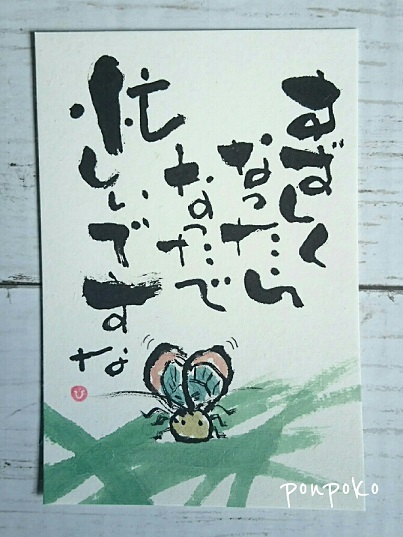 すずしく
なったら
なったで
忙しいですな
ひ
ponpoko